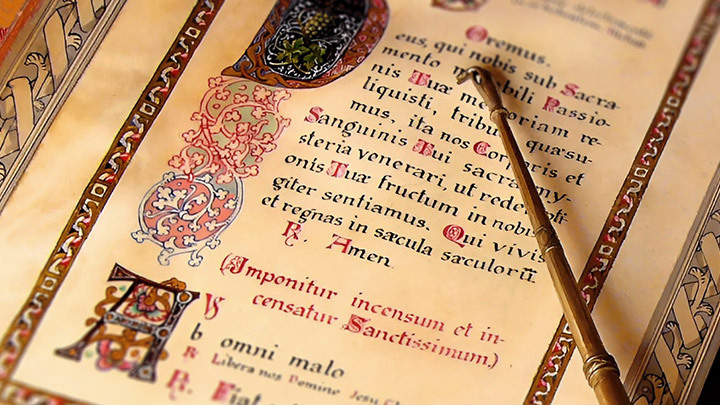 Oremus.
Deus, qui nobis sub Sacra-
mento Passio-
nis Tuæ memoriam re-
liquisti, tribue quæsu-
mus, ita nos Corporis et
Sanguinis Tui sacra my-
steria venerari, ut
onis Tuæ fructum in nobis
giter sentiamus. Qui vivis
et regnas in sæcula sæculorū
℟. Amen.
(Imponitur incensum et in-
censatur Sanctissimum.)
℣
Ab omni malo
℟ Libera nos Domine Jesu
℟. Fiat